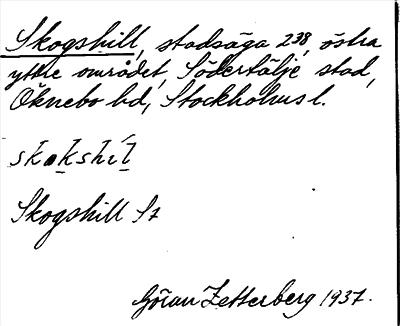 Skogshill, stadsäga 238, östra
yttre området, Södertälje stad,
Öknebo hd, Stockholms l.
skokshil
Skogshill St
Göran Zetterberg 1937.